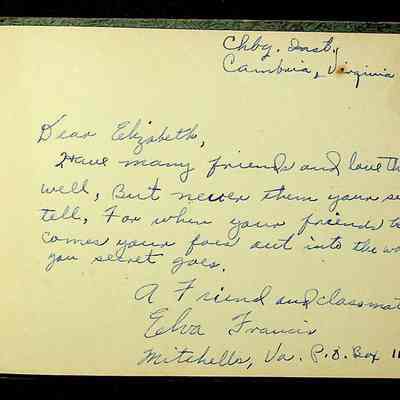 Chbg. Inst.,
Cambria, Virginia
Dear Elizabeth,
Have many friends and love th
well, But never them your se
tell, For when your friends
comes your foes out into the wo
you secret goes.
A Friend and classmat
Elva Francis
Mitchells, Va. P.O. Box 11